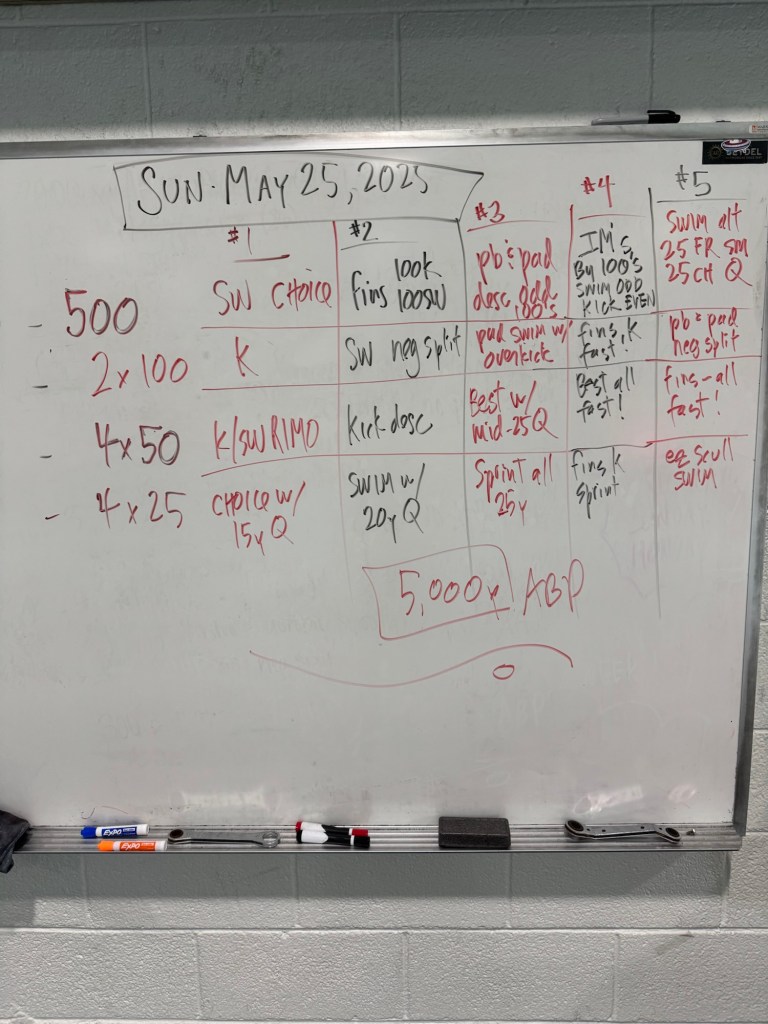 SUN. MAY 25, 2025
#1
#2
#3
#4
#5
- 500
SW CHOICE
fins 100K
100SW
pb & pad
desc odd
100's
IM's
By 100's
SWIM ODD
KICK EVEN
SWIM alt
25 FR SM
25 CH Q
- 2 x 100
K
SW neg split
pad swim w/
overkick
fins, K
fast!
pb & pad
neg split
- 4x50
K/SW RIMO
Kick desc
Best w/
mid-25Q
Best all
fast!
fins-all
fast!
- 4 x 25
CHOICE w/
15y Q
SWIM w/
20y Q
Sprint all
25y
fins K
sprint
ez scull
SWIM
5,000y
EXPO
EXPO